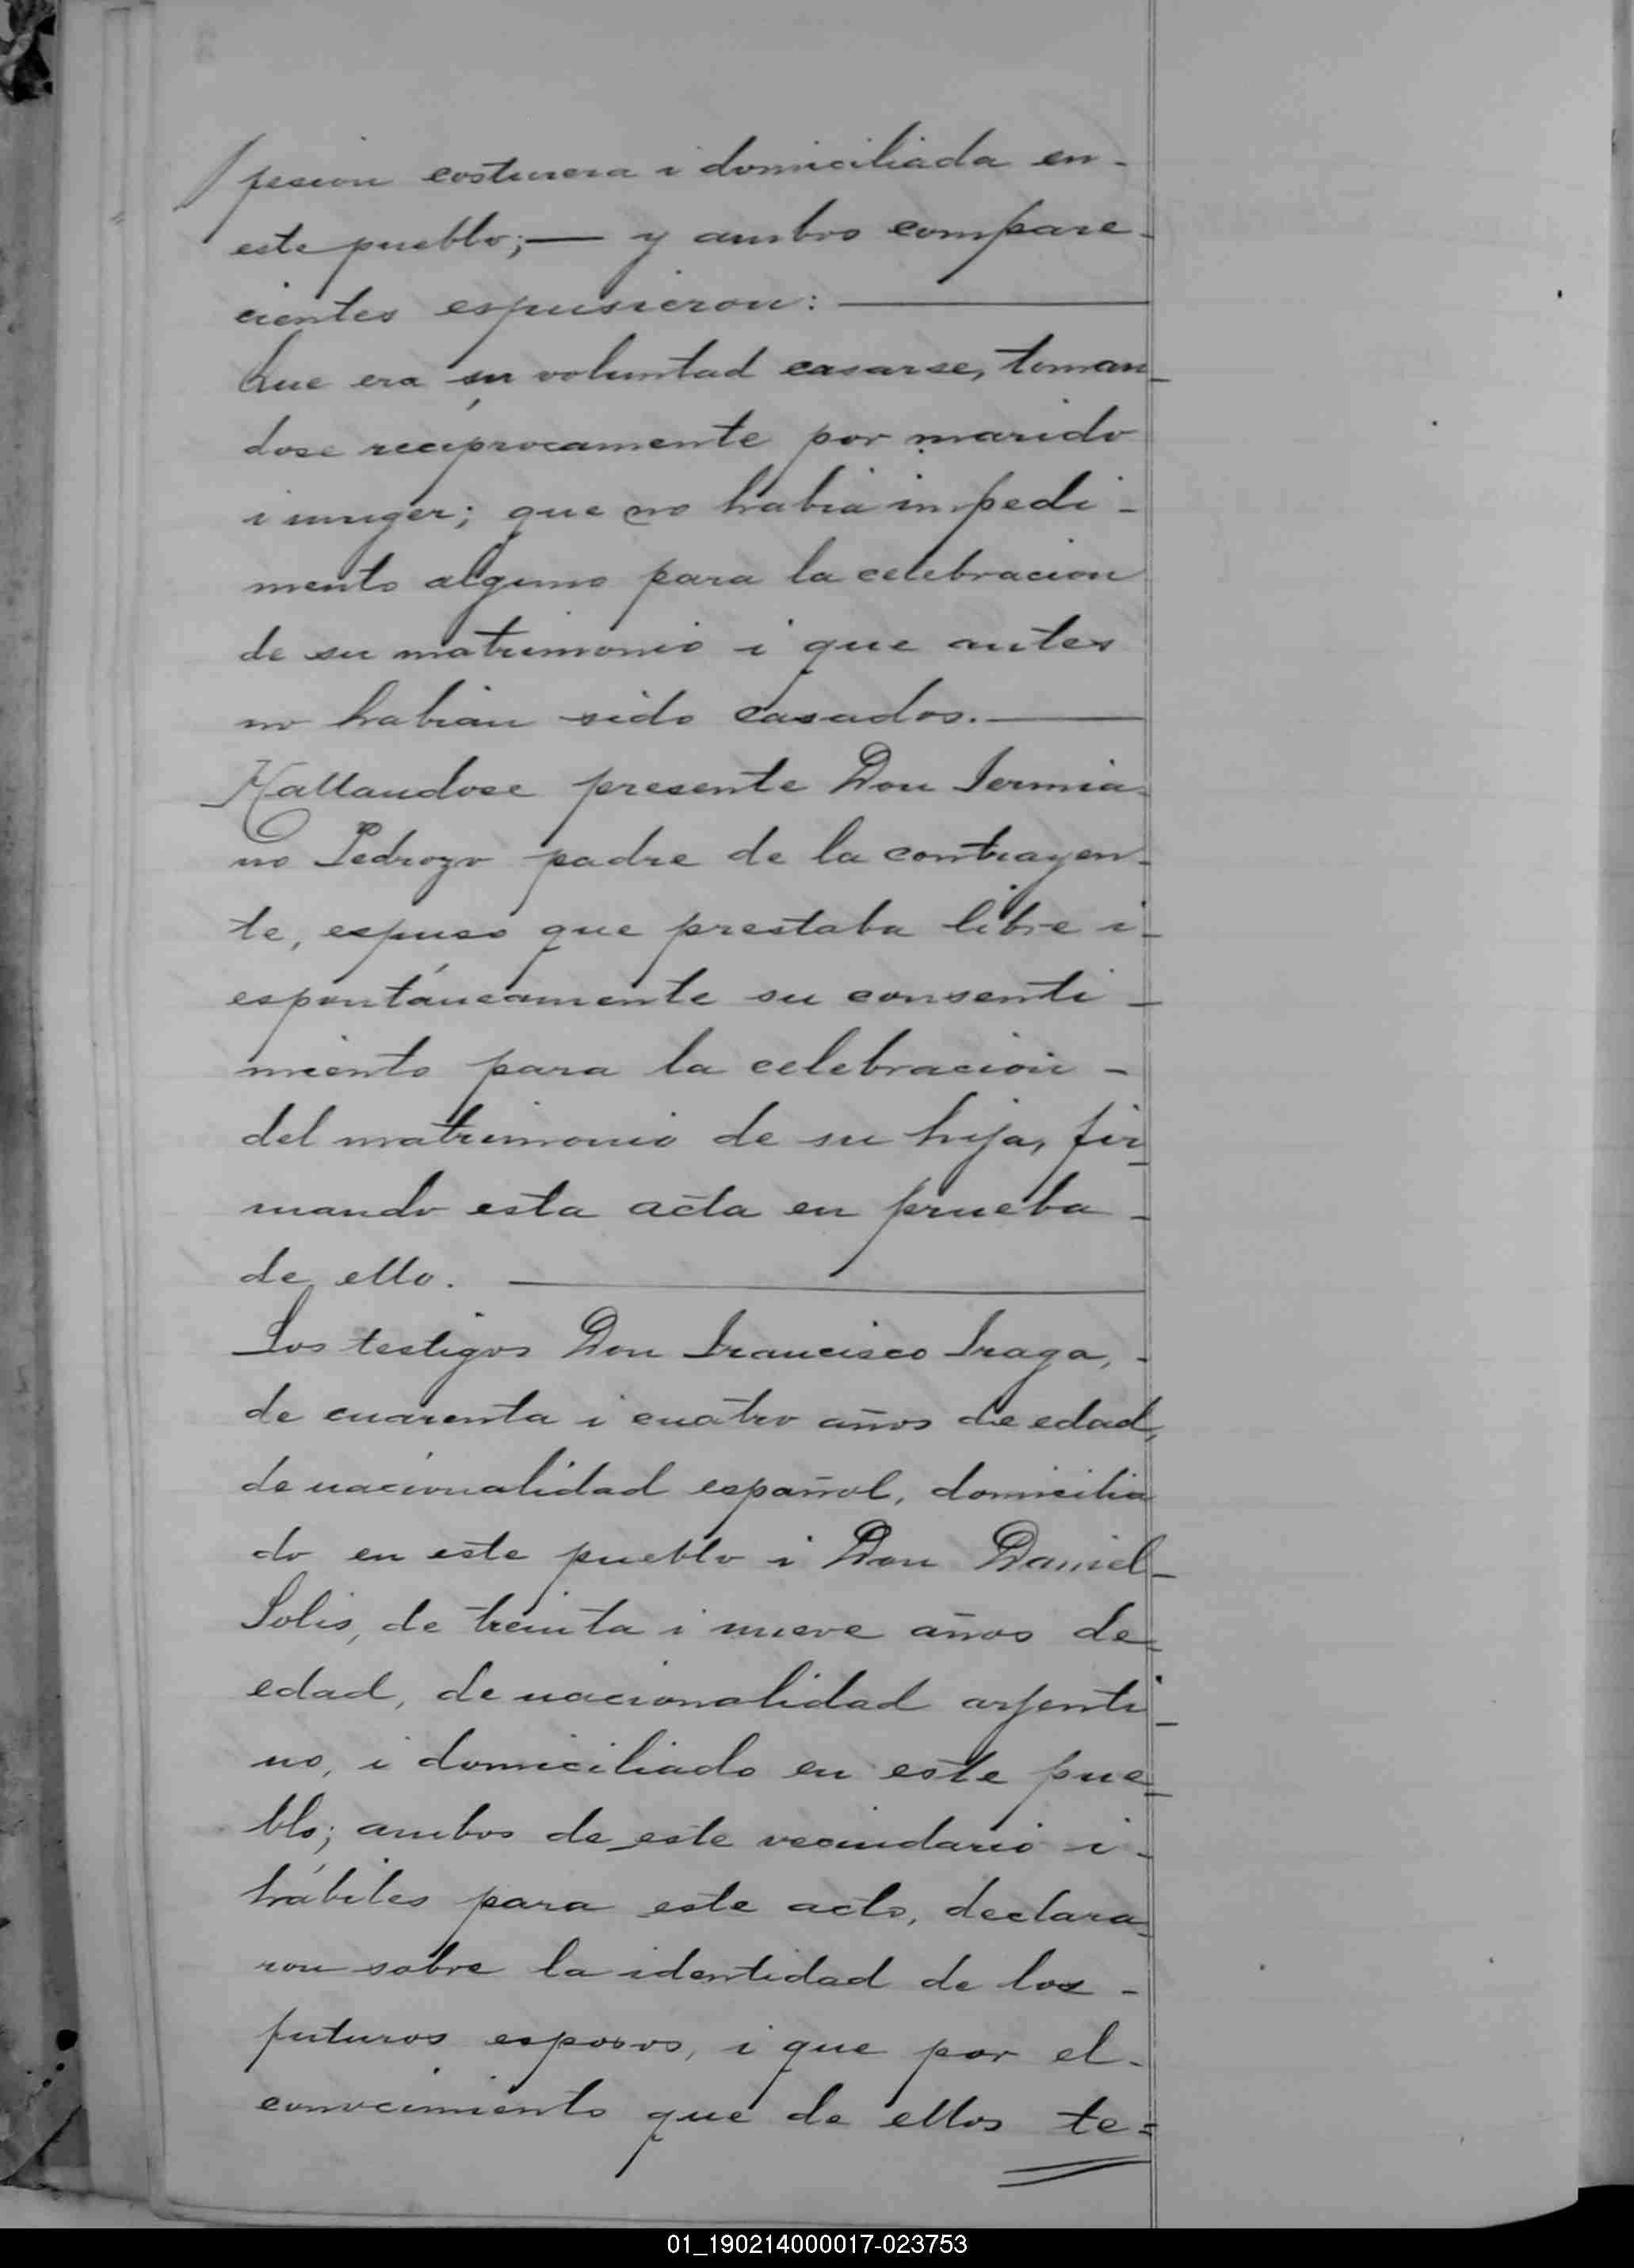 fesion costurera i domiciliada en-
este pueblo;— y ambos compare-
cientes espusieron: —
Que era su voluntad casarse, toman-
dose recíprocamente por marido
i muger; que no habia impedi-
mento alguno para la celebracion
de su matrimonio i que antes
no habian sido casados. —
Hallandose presente Don Fermia-
no Pedrozo padre de la contrayen-
te, espuso que prestaba libre i-
espontáneamente su consenti-
miento para la celebracion-
del matrimonio de su hija, fir-
mando esta acta en prueba-
de ello. —
Los testigos Don Francisco Fraga,-
de cuarenta i cuatro años de edad,
de nacionalidad español, domicilia
do en este pueblo i Don Daniel-
Solis, de treinta i nueve años de-
edad, de nacionalidad arjenti-
no, i domiciliado en este pue-
blo; ambos de este vecindario i-
hábiles para este acto, declara-
ron sobre la identidad de los-
futuros esposos, i que por el-
conocimiento que de ellos te=
01_190214000017-023753